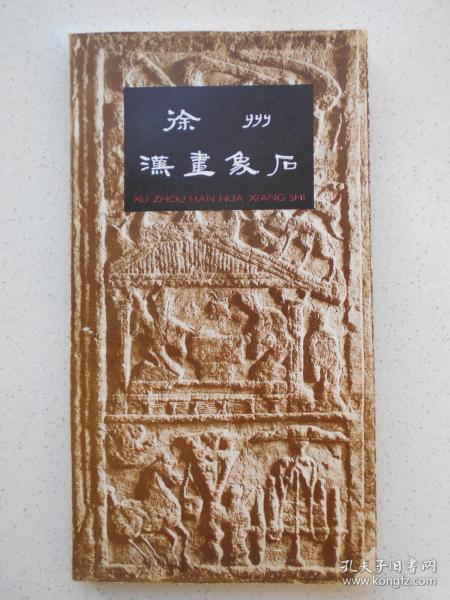 徐州
漢畫象石
XU ZHOU HAN HUA XIANG SHI
孔夫子旧书网
www.kongfz.com